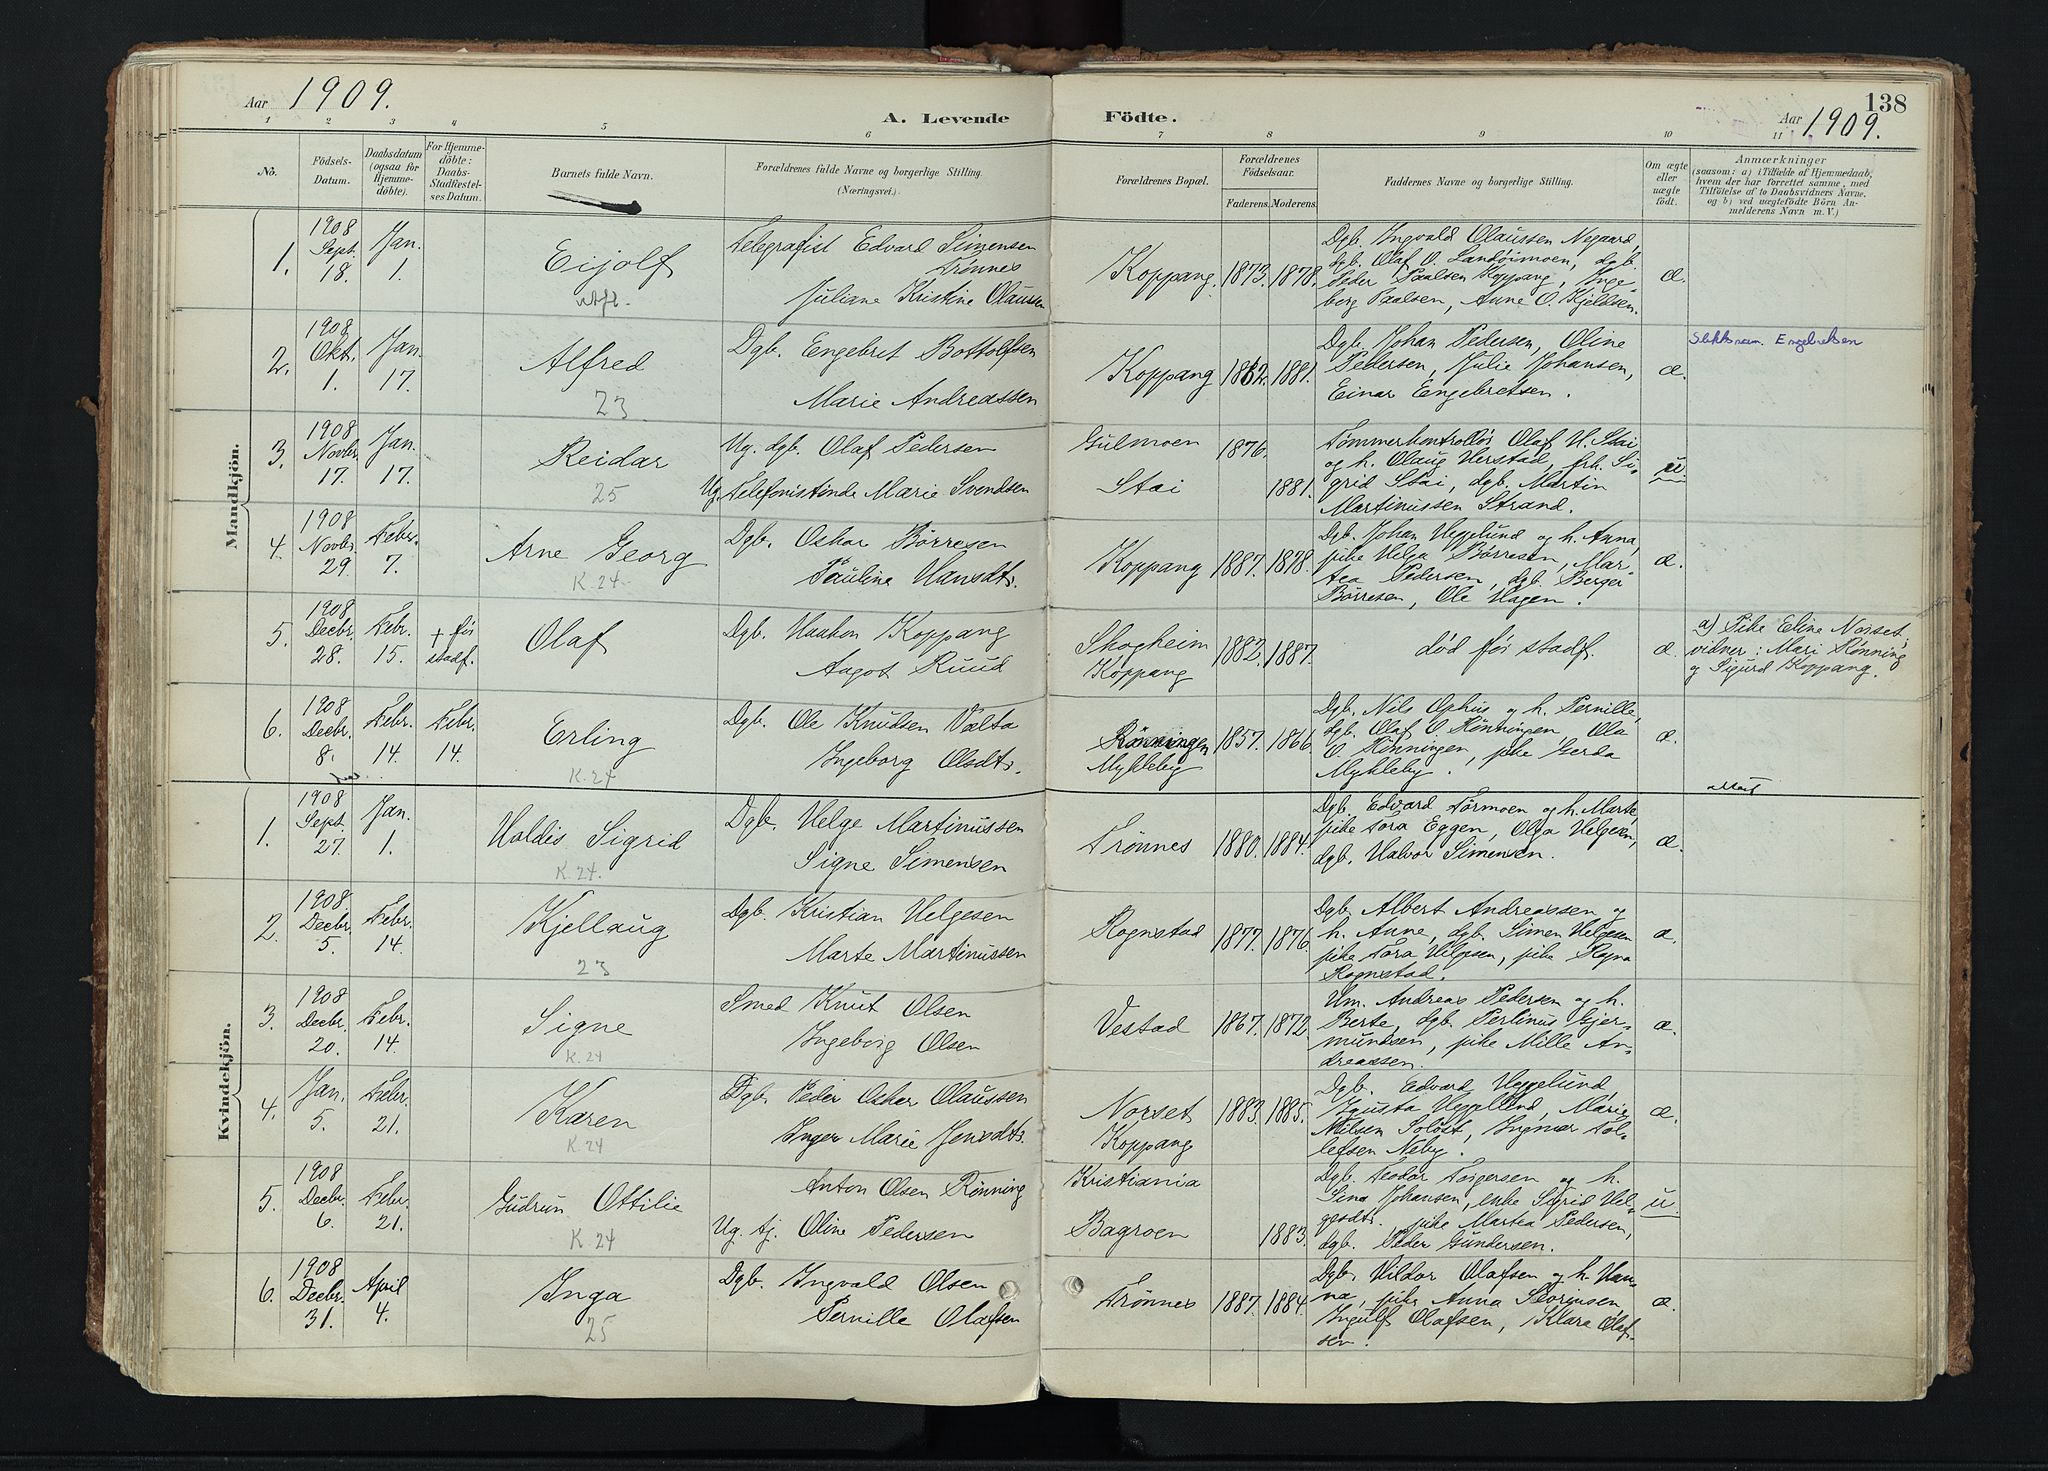 Aar 1909.
A. Levende Födte.
138
Aar 1909.
1 2 3 4 5 6 7 8 9 10 11
No.
Födsels-
Datum.
Daabsdatum
(ogsaa for
Hjemme-
döbte).
For Hjemme-
döbte:
Daabs-
Stadfæstel-
ses Datum.
Barnets fulde Navn.
Forældrenes fulde Navne og borgerlige Stilling.
(Næringsvei.)
Forældrenes Bopæl.
Forældrenes
Födselsaar.
Faderens. Moderens.
Faddernes Navne og borgerlige Stilling.
Om ægte
eller
uægte
födt.
Anmærkninger
(saasom: a) i Tilfælde af Hjemmedaab,
hvem der har forrettet samme, med
Tilföielse af to Daabsvidners Navne.
og b) ved uægtefödte Börn An-
melderens Navn m. V.)
Mandkjön.
1.
1908
Sept.
18.
Jan.
1.
Eijolf
Telegrafist Edvard Simensen
Trønnes
Juliane Kristine Olaussen
Koppang. 1873. 1878.
Dgb. Ingvald Olaussen Negaard,
dgb. Olaf O. Landsørmoen, dgb.
Peder Paalsen Koppang, Inge-
borg Paalsen, Anne O. Kjeldsen.
æ.
2.
1908
Okt.
1.
Jan.
17.
Alfred
23
Dgb. Engebret Bottolfsen
Marie Andreassen
Koppang 1882. 1881.
Dgb. Johan Pedersen, Oline
Pedersen, Julie Johansen,
Einar Engebretsen.
æ.
Slektsnavn. Engebretsen
3.
1908
Novbr.
17.
Jan.
17.
Reidar
25
Ug. dgb. Olaf Pedersen
Ug. Telefonistinde Marie Svendsen
Gulmoen
Stai
1876.
1881.
Tømmerkontrollør Olaf H. Stai
og h. Olaug Herstad, frk. Si-
grid Stai, dgb. Martin
Martinussen Strand.
u
4.
1908
Novbr.
29.
Febr.
7.
Arne Georg
K. 24
Dgb. Oskar Børresen
Pauline Hansdtr.
Koppang 1887. 1878.
Dgb. Johan Heggelund og h. Anna,
pike Helga Børresen, Mar-
tea Pedersen, dgb. Berger
Børresen, Ole Hagen.
æ.
5.
1908
Decbr.
28.
Febr.
15.
† før
stadf.
Olaf
Dgb. Haakon Koppang
Aagot Ruud
Skogheim
Koppang
1882. 1887.
død før stadf.
æ.
a) Pike Eline Norset,
vidner: Mari Rønning
og Sigurd Koppang.
6.
1908
Decbr.
8.
Febr.
14.
Febr.
14.
Erling
K. 24
Dgb. Ole Knudsen Valta
Ingeborg Olsdtr.
Rønningen
Mykleby
1857. 1866
Dgb. Nils Ophus og h. Pernille,
dgb. Olaf O. Rønningen, Ola
O. Rønningen, pike Gerda
Mykleby.
æ.
Kvindekjön.
1.
1908
Sept.
27.
Jan.
1.
Haldis Sigrid
K. 24.
Dgb. Helge Martinussen
Signe Simensen
Trønnes 1880. 1884.
Dgb. Edvard Tørmoen og h. Marte,
pike Tora Eggen, Olga Helgesen,
dgb. Halvor Simensen.
æ.
2.
1908.
Decbr.
5.
Febr.
14.
Kjellaug
23
Dgb. Kristian Helgesen
Marte Martinussen
Rognstad 1877. 1876.
Dgb. Albert Andreassen og
h. Anne, dgb. Simen Helgesen
pike Tora Helgesen, pike Ragna
Rognstad.
æ.
3.
1908
Decbr.
20.
Febr.
14.
Signe
K. 24
Smed Knut Olsen
Ingeborg Olsen
Vestad 1867. 1872.
Um. Andreas Pedersen og h.
Berte, dgb. Perlinus Gjer-
mundsen, pike Mille An-
dreassen.
æ.
4.
Jan.
5.
Febr.
21.
Karen
K. 24
Dgb. Peder Oskar Olaussen
Inger Marie Jensdtr.
Norset
Koppang
1883. 1885.
Dgb. Edvard Heggelund,
Gusta Heggelund, Marie
Nilsen Soløst, Ingmar Tol-
lefsen Neby.
æ.
5.
1908
Decbr.
6.
Febr.
21.
Gudrun Ottilie
K. 24
Anton Olsen Rønning
Ug. tj. Oline Pedersen
Kristiania
Bagroen
1883.
Dgb. Teodor Torgersen og h.
Lina Johansen, enke Sigrid Hel-
gesdtr., pike Martea Pedersen,
dgb. Peder Gundersen.
u.
6.
1908
Decbr.
31.
April
4.
Inga
25
Dgb. Ingvald Olsen
Pernille Olafsen
Trønnes 1887. 1884.
Dgb. Hildor Olafsen og h. Han-
na, pike Anna Sevrinsen,
Ingulf Olafsen, Klara Olaf-
sen.
æ.